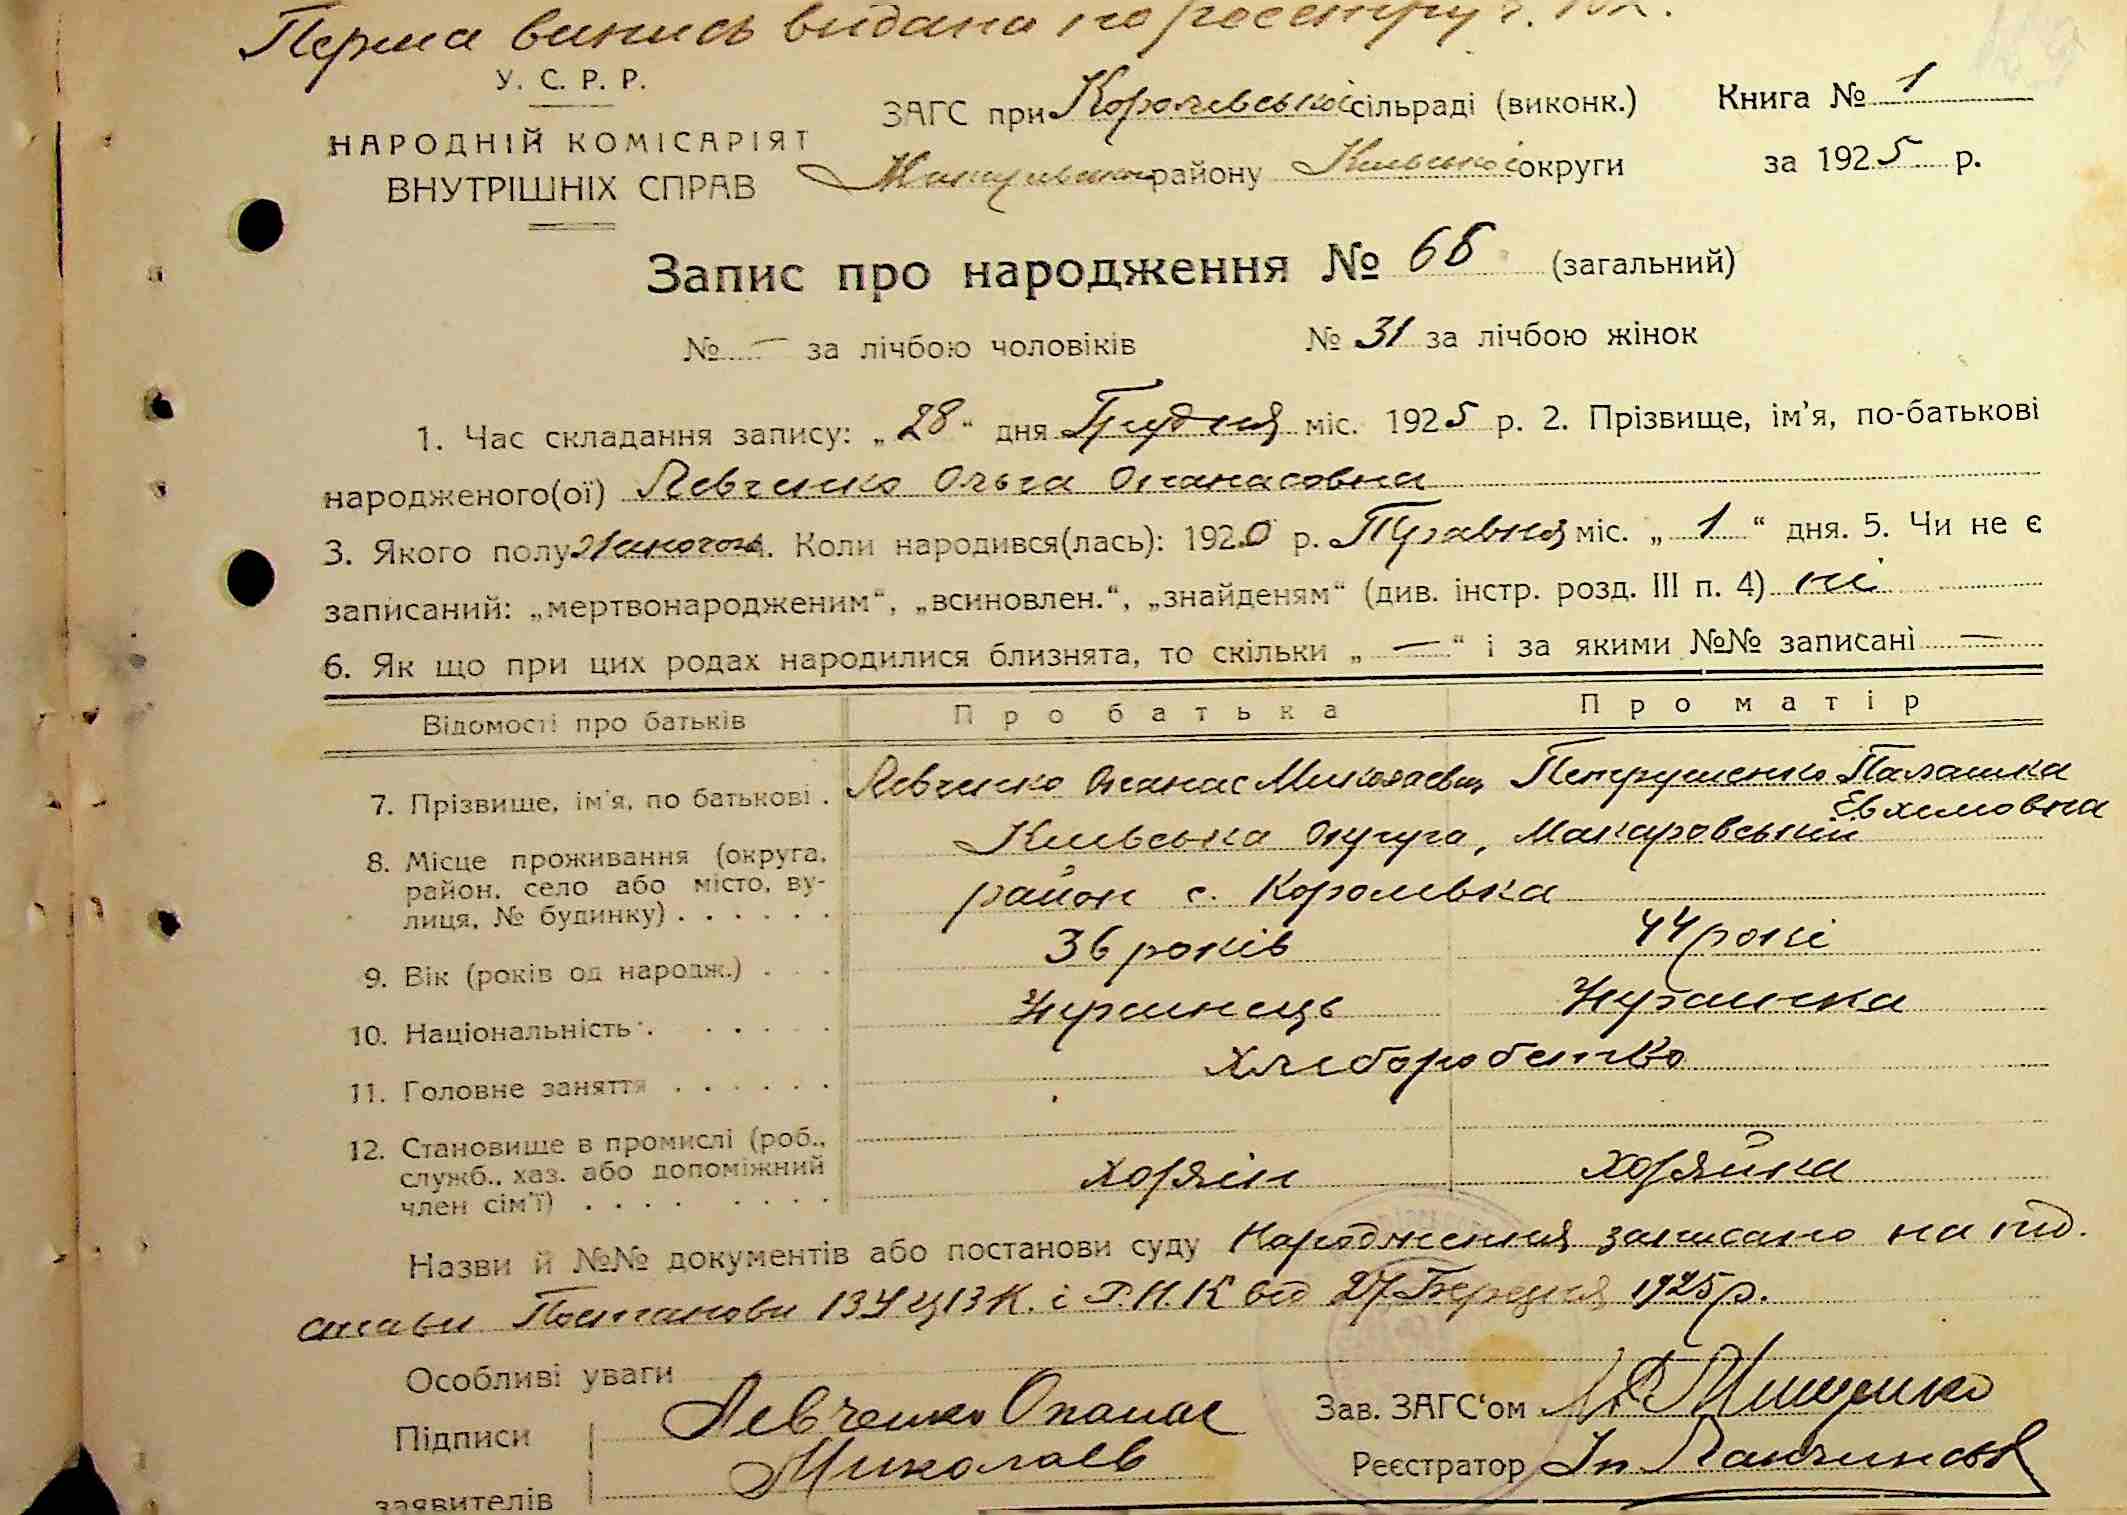 Перша випись видана по реєстру ч.
У. С. Р. Р.
НАРОДНІЙ КОМІСАРІЯТ
ВНУТРІШНІХ СПРАВ
ЗАГС при Королевській сільраді (виконк.)
району Київської округи
Книга № 1
за 1925 р.
Запис про народження № 68 (загальний)
№ — за лічбою чоловіків № 31 за лічбою жінок
1. Час складання запису: „28“ дня Грудня міс. 1925 р. 2. Прізвище, ім'я, по-батькові
народженого(ої) Левченко Ольга Опанасовна
3. Якого полу Жіночого 4. Коли народився(лась): 1920 р. Травня міс. „1“ дня. 5. Чи не є
записаний: „мертвонародженим“, „всиновлен.“, „знайденям“ (див. інстр. розд. III п. 4) ні
6. Як що при цих родах народилися близнята, то скільки „—“ і за якими №№ записані —
Відомості про батьків Про батька Про матір
7. Прізвище, ім'я, по батькові . Левченко Опанас Миколаевич Петрушенко Палашка
Евхимовна
8. Місце проживання (округа, район, село або місто, ву-
лиця, № будинку) . . . . . . Київська округа, Макаровський
район с. Королівка
9. Вік (років од народж.) . . . 36 років 44 роки
10. Національність . . . . . . Украинець Украинка
11. Головне заняття . . . . . . Хліборобство
12. Становище в промислі (роб.,
служб., хаз. або допоміжний
член сім'ї) . . . . . . . . хозяін хозяйка
Назви й №№ документів або постанови суду Народження записано на під-
стави Постанови ВУЦВК. і Р.Н.К від 27 Березня 1925 р.
Особливі уваги
Підписи
заявителів
Левченко Опанас
Миколаев
Зав. ЗАГС'ом
Реєстратор